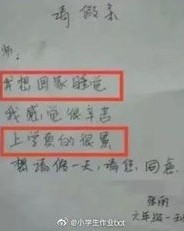 请假条
师:
我想回家睡觉
我感觉很辛苦
上学真的很累
想请假一天,请您同意
张雨
六年级一班
@小学生作业bot